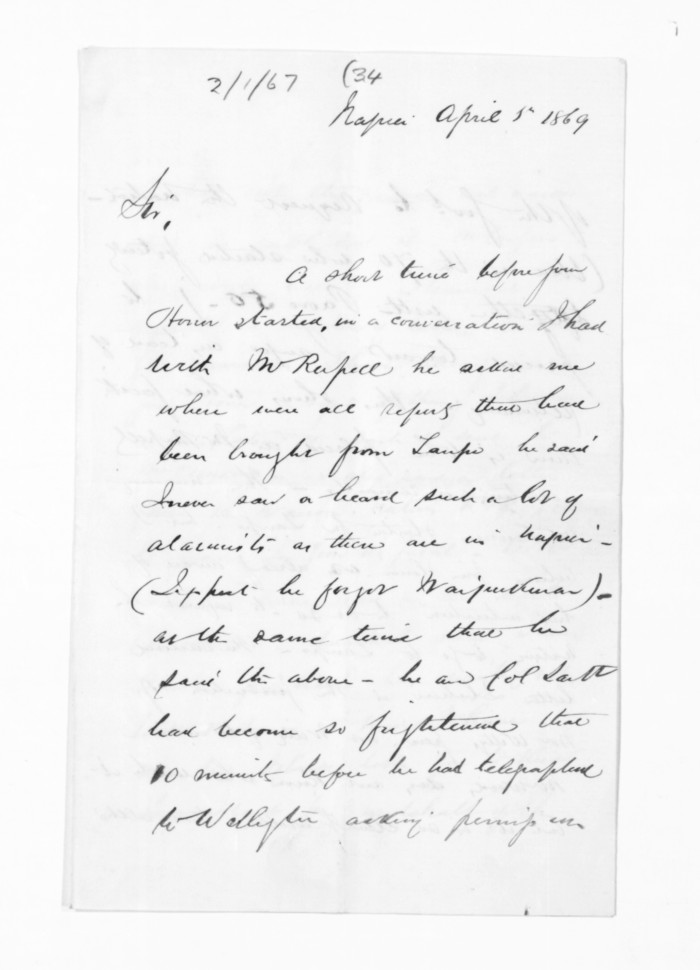 2/1/67 (34
Napier April 5th 1869
Sir,
A short time before your
Honor started, in a conversation I had
with Mr Russell he asked me
where were all reports that had
been brought from Taupo he said
I never saw or heard such a lot of
alarmists as there are in Napier -
(I suppose he forgot Waipukurau) -
at the same time that he
said the above - he and Col
had become so frightened that
10 minutes before he had telegraphed
to Wellington asking permission